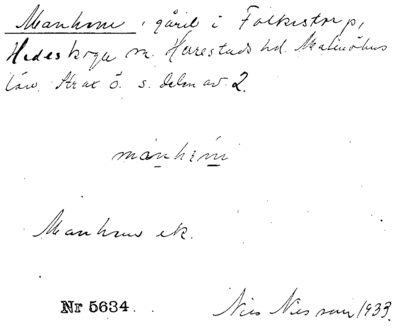 Manhem, gård i Folkestorp,
Hedeskoga sn. Herrestads hd. Malmöhus
län. Strax ö. s. delen av 2.
manhem
Manhem ek.
Nr 5634. Nils Nilsson 1933.